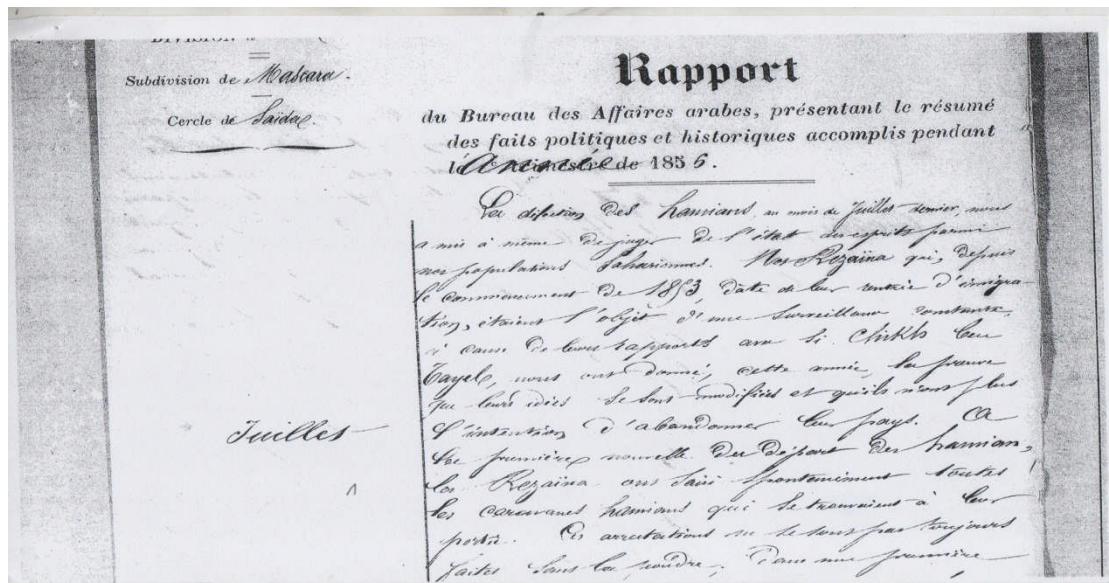 DIVISION d
Subdivision de Mascara.
Cercle de Saïda.
Rapport
du Bureau des Affaires arabes, présentant le résumé
des faits politiques et historiques accomplis pendant
l'Année de 1856.
La défection des hamians, au mois de Juillet dernier, nous
a mis à même de juger de l'état des esprits parmi
nos populations Sahariennes. Nos Rezaïna qui, depuis
le commencement de 1853, date de leur rentrée d'émigra-
tion, étaient l'objet d'une surveillance constante,
à cause de leurs rapports avec Si Chikh ben
Tayeb, nous ont donné, cette année, la preuve
que leurs idées se sont modifiées et qu'ils n'ont plus
l'intention d'abandonner leur pays. A
Juillet
la première nouvelle du départ des hamian,
les Rezaïna ont saisi spontanément toutes
les caravanes hamians qui se trouvaient à leur
portée. Ces arrestations ne se sont pas toujours
faites sans la poudre; dans une première